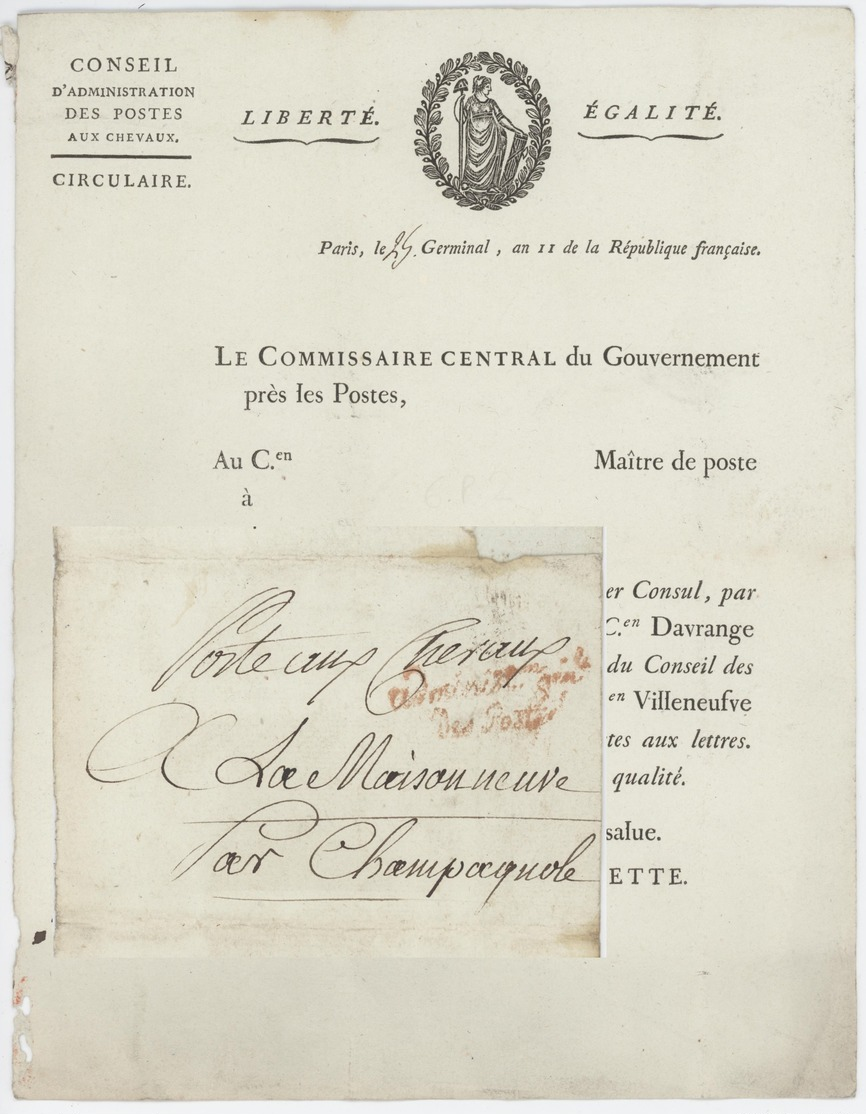 CONSEIL
D'ADMINISTRATION
DES POSTES
AUX CHEVAUX.
CIRCULAIRE.
LIBERTÉ.
ÉGALITÉ.
Paris, le 25. Germinal, an 11 de la République française.
LE COMMISSAIRE CENTRAL du Gouvernement
près les Postes,
Au C.en Maître de poste
à
er Consul, par
C.en Davrange
du Conseil des
en Villeneufve
tes aux lettres.
qualité.
salue.
ETTE.
Poste aux Chevaux
Des Postes
A La Maisonneuve
Par Champagnole